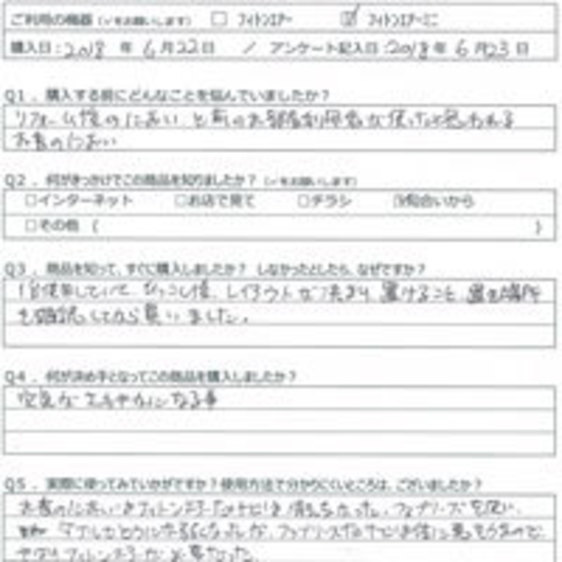 ご利用の機器（✓をお願いします） □ フィトンエアー ☑ フィトンエアーミニ
購入日：2018 年 6月22日 ／ アンケート記入日：2018年 6月23日
Q1．購入する前にどんなことを悩んでいましたか？
リフォーム後のにおいと前のお部屋利用者が使ったと思われる
お香のにおい
Q2．何がきっかけでこの商品を知りましたか？（✓をお願いします）
□インターネット □お店で見て □チラシ ☑知合いから
□その他 （ ）
Q3．商品を知って、すぐに購入しましたか？ しなかったとしたら、なぜですか？
1台使用していて、ひっこし後、レイアウトが決まり、置けること、置き場所
も確認してから買いました。
Q4．何が決め手となってこの商品を購入しましたか？
空気がさわやかになる事
Q5．実際に使ってみていかがですか？使用方法で分かりにくいところは、ございましたか？
お香のにおいはフィトン だけでは消えなかった。ファブリーズを使い、
になったが、ファブリーズだけでは
やはりフィトン が必要だった。